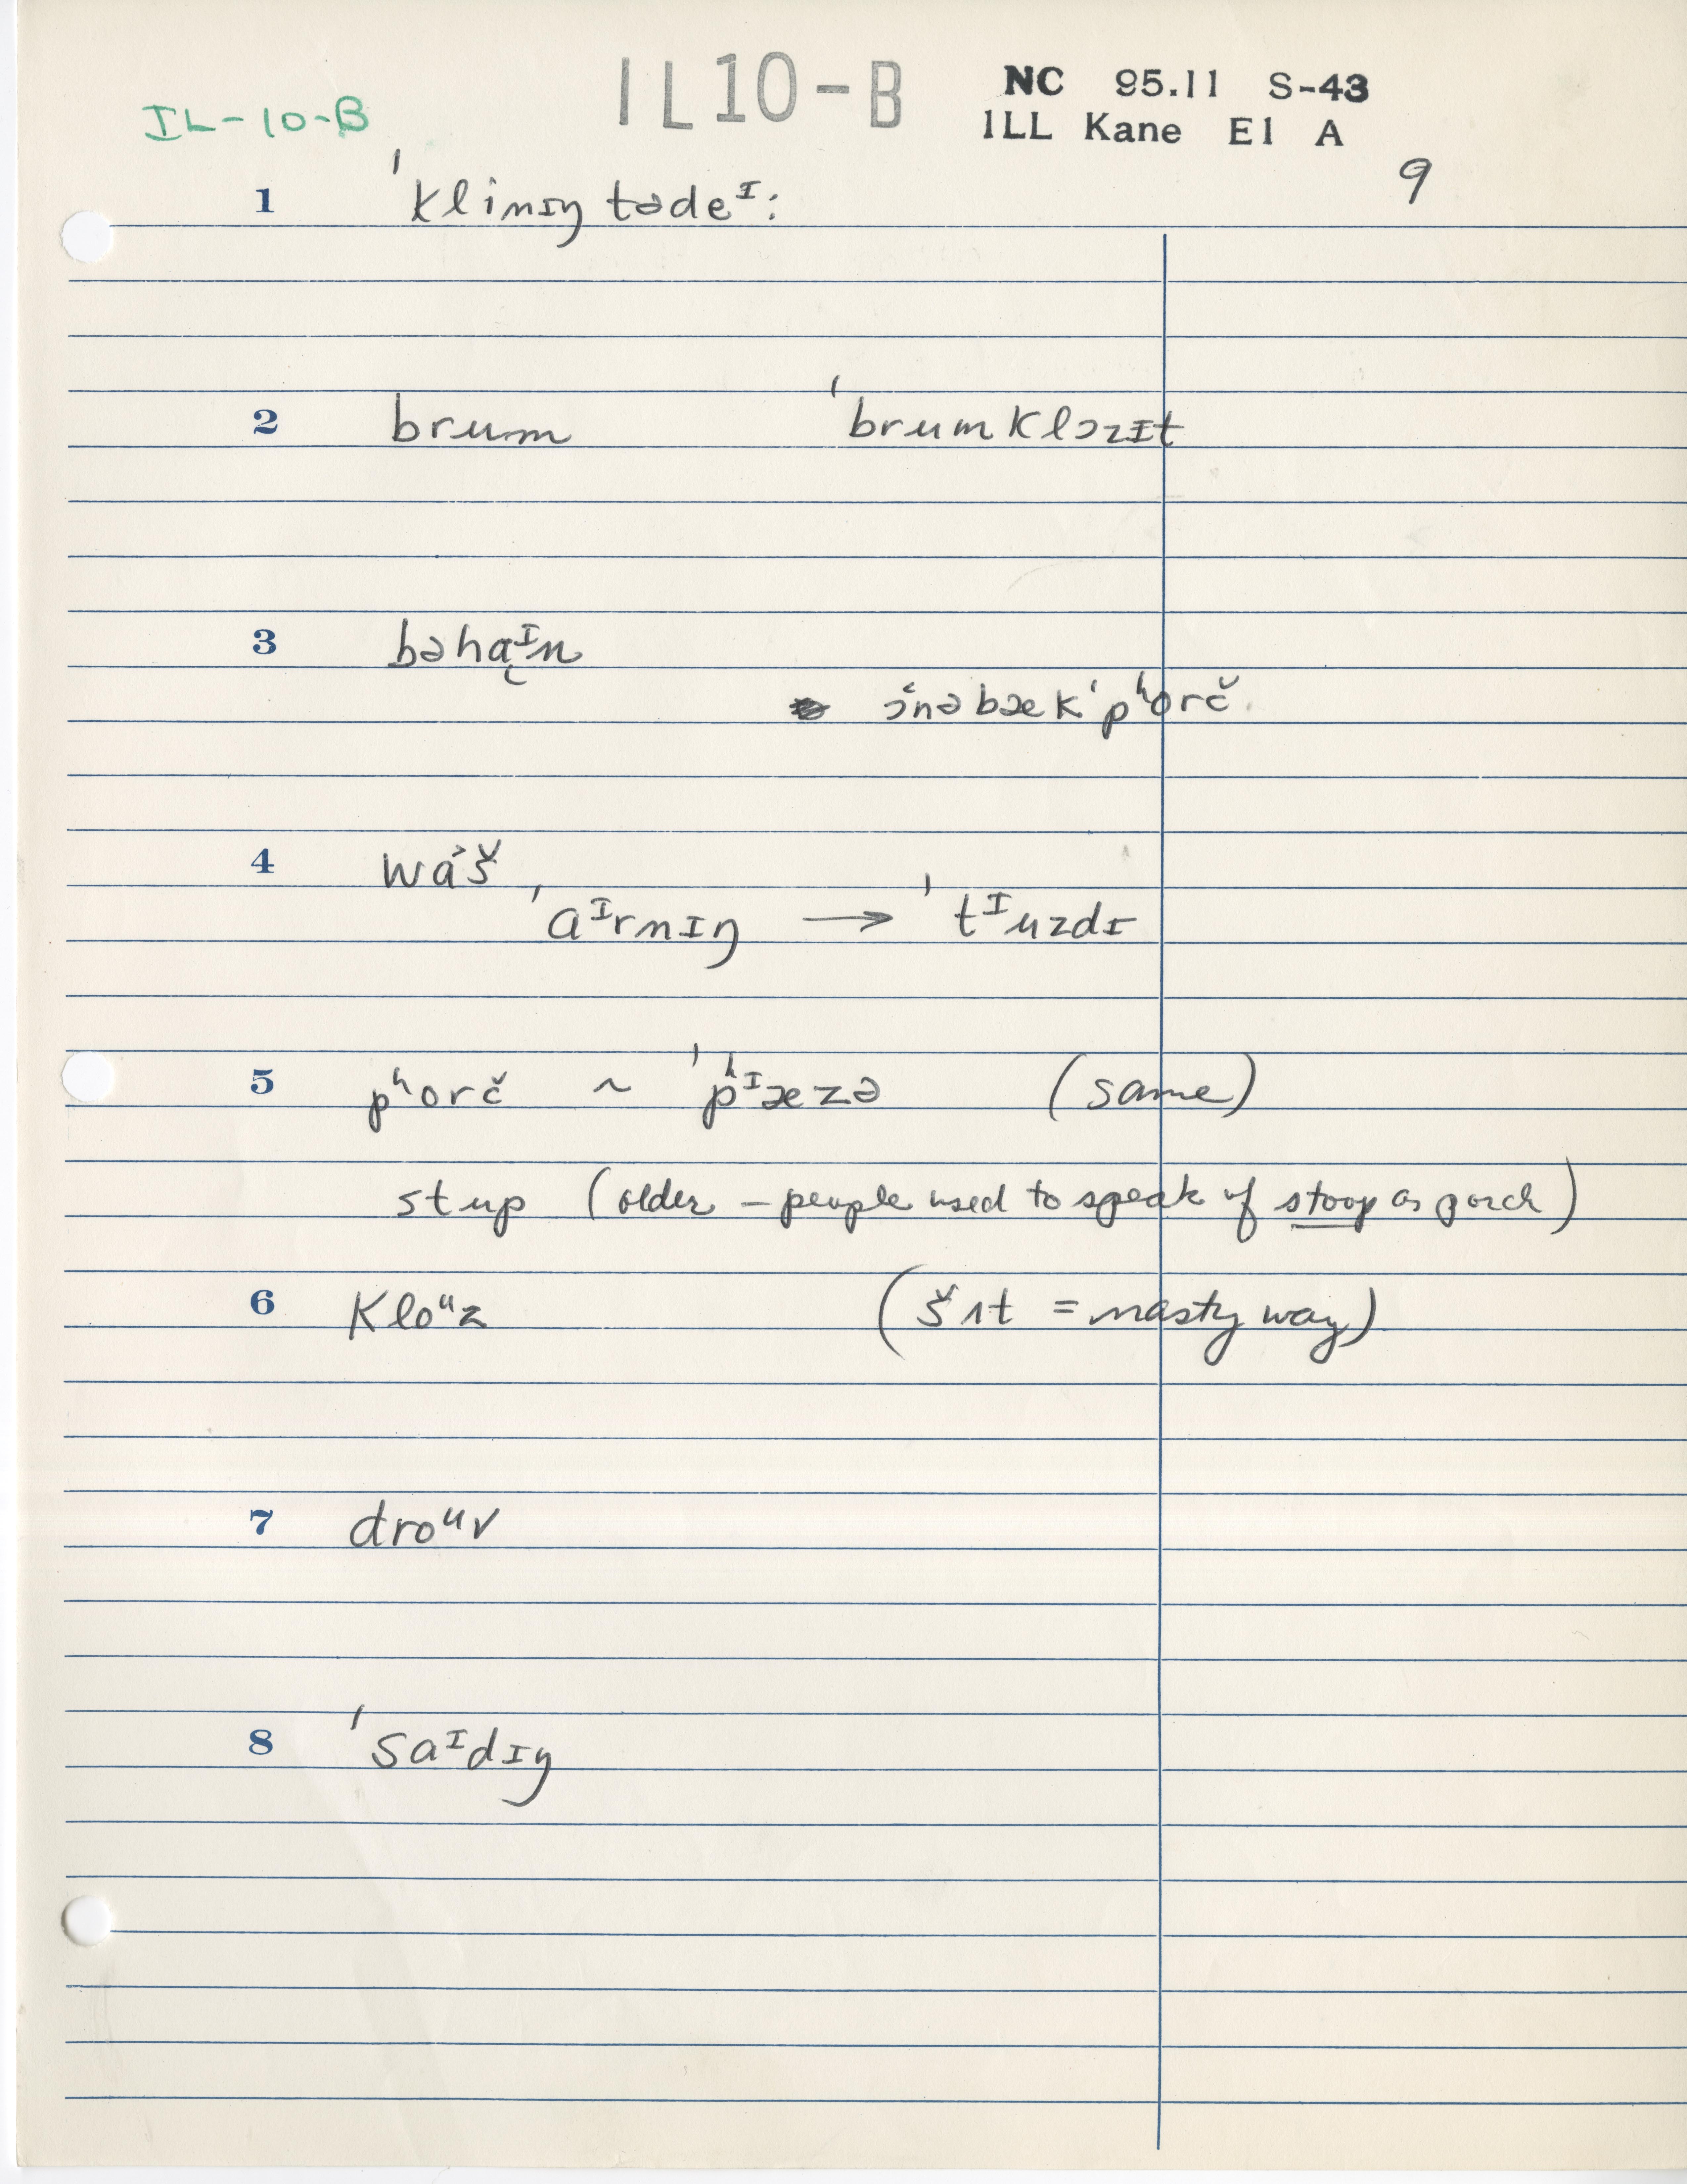 IL-10-B IL10-B NC 95.11 S-43
ILL Kane El A
9
1 ˈklimɪŋ tədeᴵ:
2 brum ˈbrumklɔzɪt
3 bəhąᴵn
ɔ́nəbækˈpʰorč
4 wáš
ˈaᴵrnɪŋ → ˈtᴵuzdɪ
5 pʰorč ~ ˈpʰᴵæzə (same)
stup (older – people used to speak of stoop as porch)
6 kloᵘz (šʌt = nasty way)
7 droᵘv
8 ˈsaᴵdɪŋ